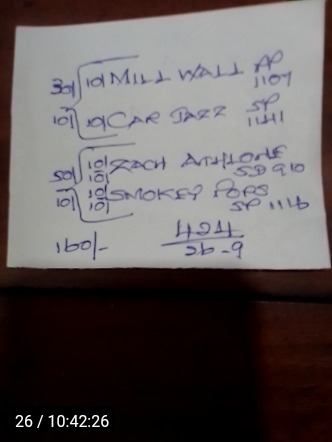 30/ 10/ MILL WALL AP
1107
10/ 10/ CAR JAZZ SP
1141
50/ 10/ 10/ ZACH ATHLONE
SD 910
10/ 10/ 10/ SMOKEY POPS
SP 1116
160/- 424
26-9
26 / 10:42:26